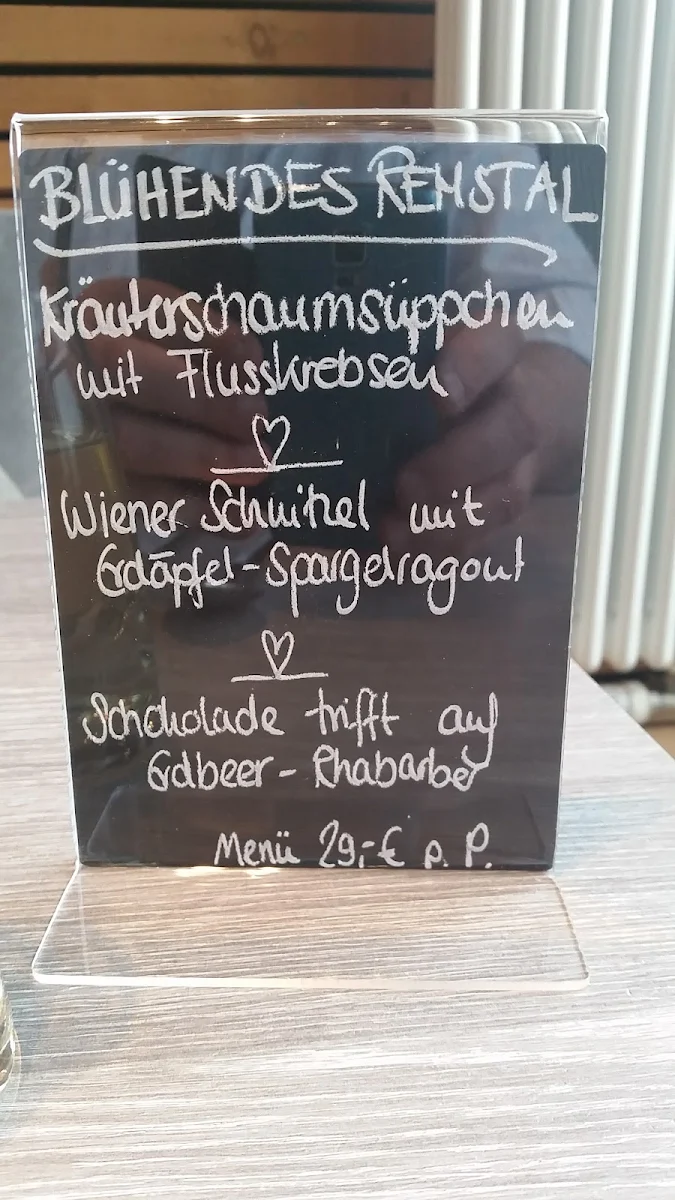 BLÜHENDES REMSTAL
Kräuterschaumsüppchen
mit Flusskrebsen
Wiener Schnitzel mit
Erdäpfel-Spargelragout
Schokolade trifft auf
Erdbeer-Rhabarber
Menü 29,-€ p. P.